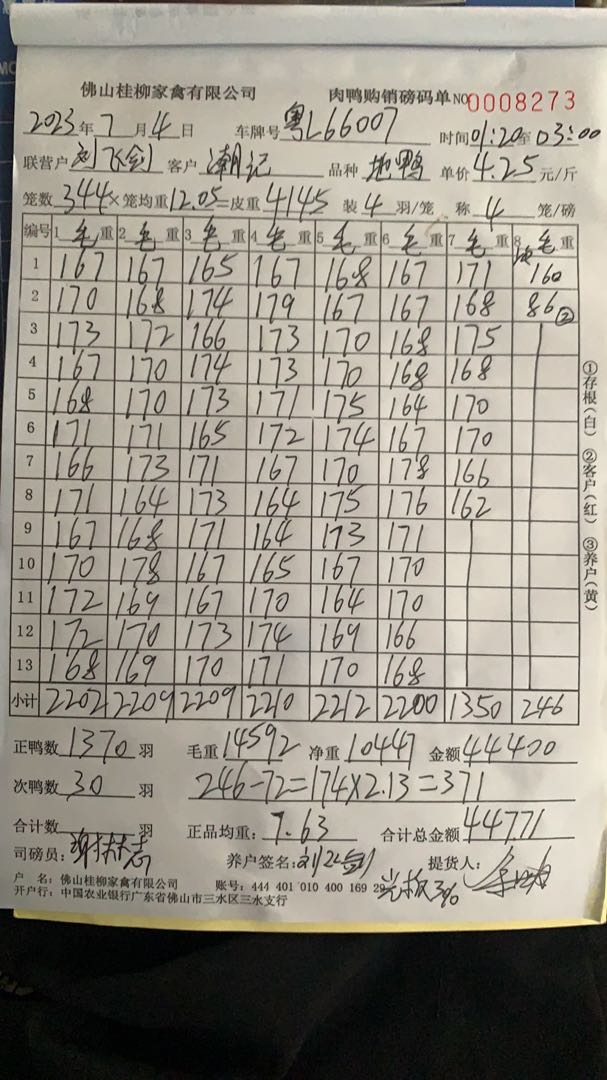 佛山桂柳家禽有限公司 肉鸭购销磅码单 NO 0008273
2023年7月4日 车牌号 粤L66007 时间01:20至03:00
联营户 刘飞剑 客户 潮记 品种 地鸭 单价 4.25 元/斤
笼数 344×笼均重 12.05=皮重 4145 装 4 羽/笼 称 4 笼/磅
编号 1 毛重 2 毛重 3 毛重 4 毛重 5 毛重 6 毛重 7 毛重 8 毛重
1 167 167 165 167 168 167 171 160
2 170 168 174 179 167 167 168 86②
3 173 172 166 173 170 168 175
4 167 170 174 173 170 168 168
5 168 170 173 171 175 164 170
6 171 171 165 172 174 167 170
7 166 173 171 167 170 178 166
8 171 164 173 164 175 176 162
9 167 168 171 164 173 171
10 170 178 167 165 167 170
11 172 169 167 170 164 170
12 172 170 173 174 169 166
13 168 169 170 171 170 168
小计 2202 2209 2209 2210 2212 2200 1350 246
正鸭数 1370 羽 毛重 14592 净重 10447 金额 44400
次鸭数 30 羽 246-72=174×2.13=371
合计数 羽 正品均重: 7.63 合计总金额 44771
司磅员: 养户签名: 刘飞剑 提货人:
户 名: 佛山桂柳家禽有限公司 账号: 444 401 010 400 169 29
开户行: 中国农业银行广东省佛山市三水区三水支行
①存根(白) ②客户(红) ③养户(黄)